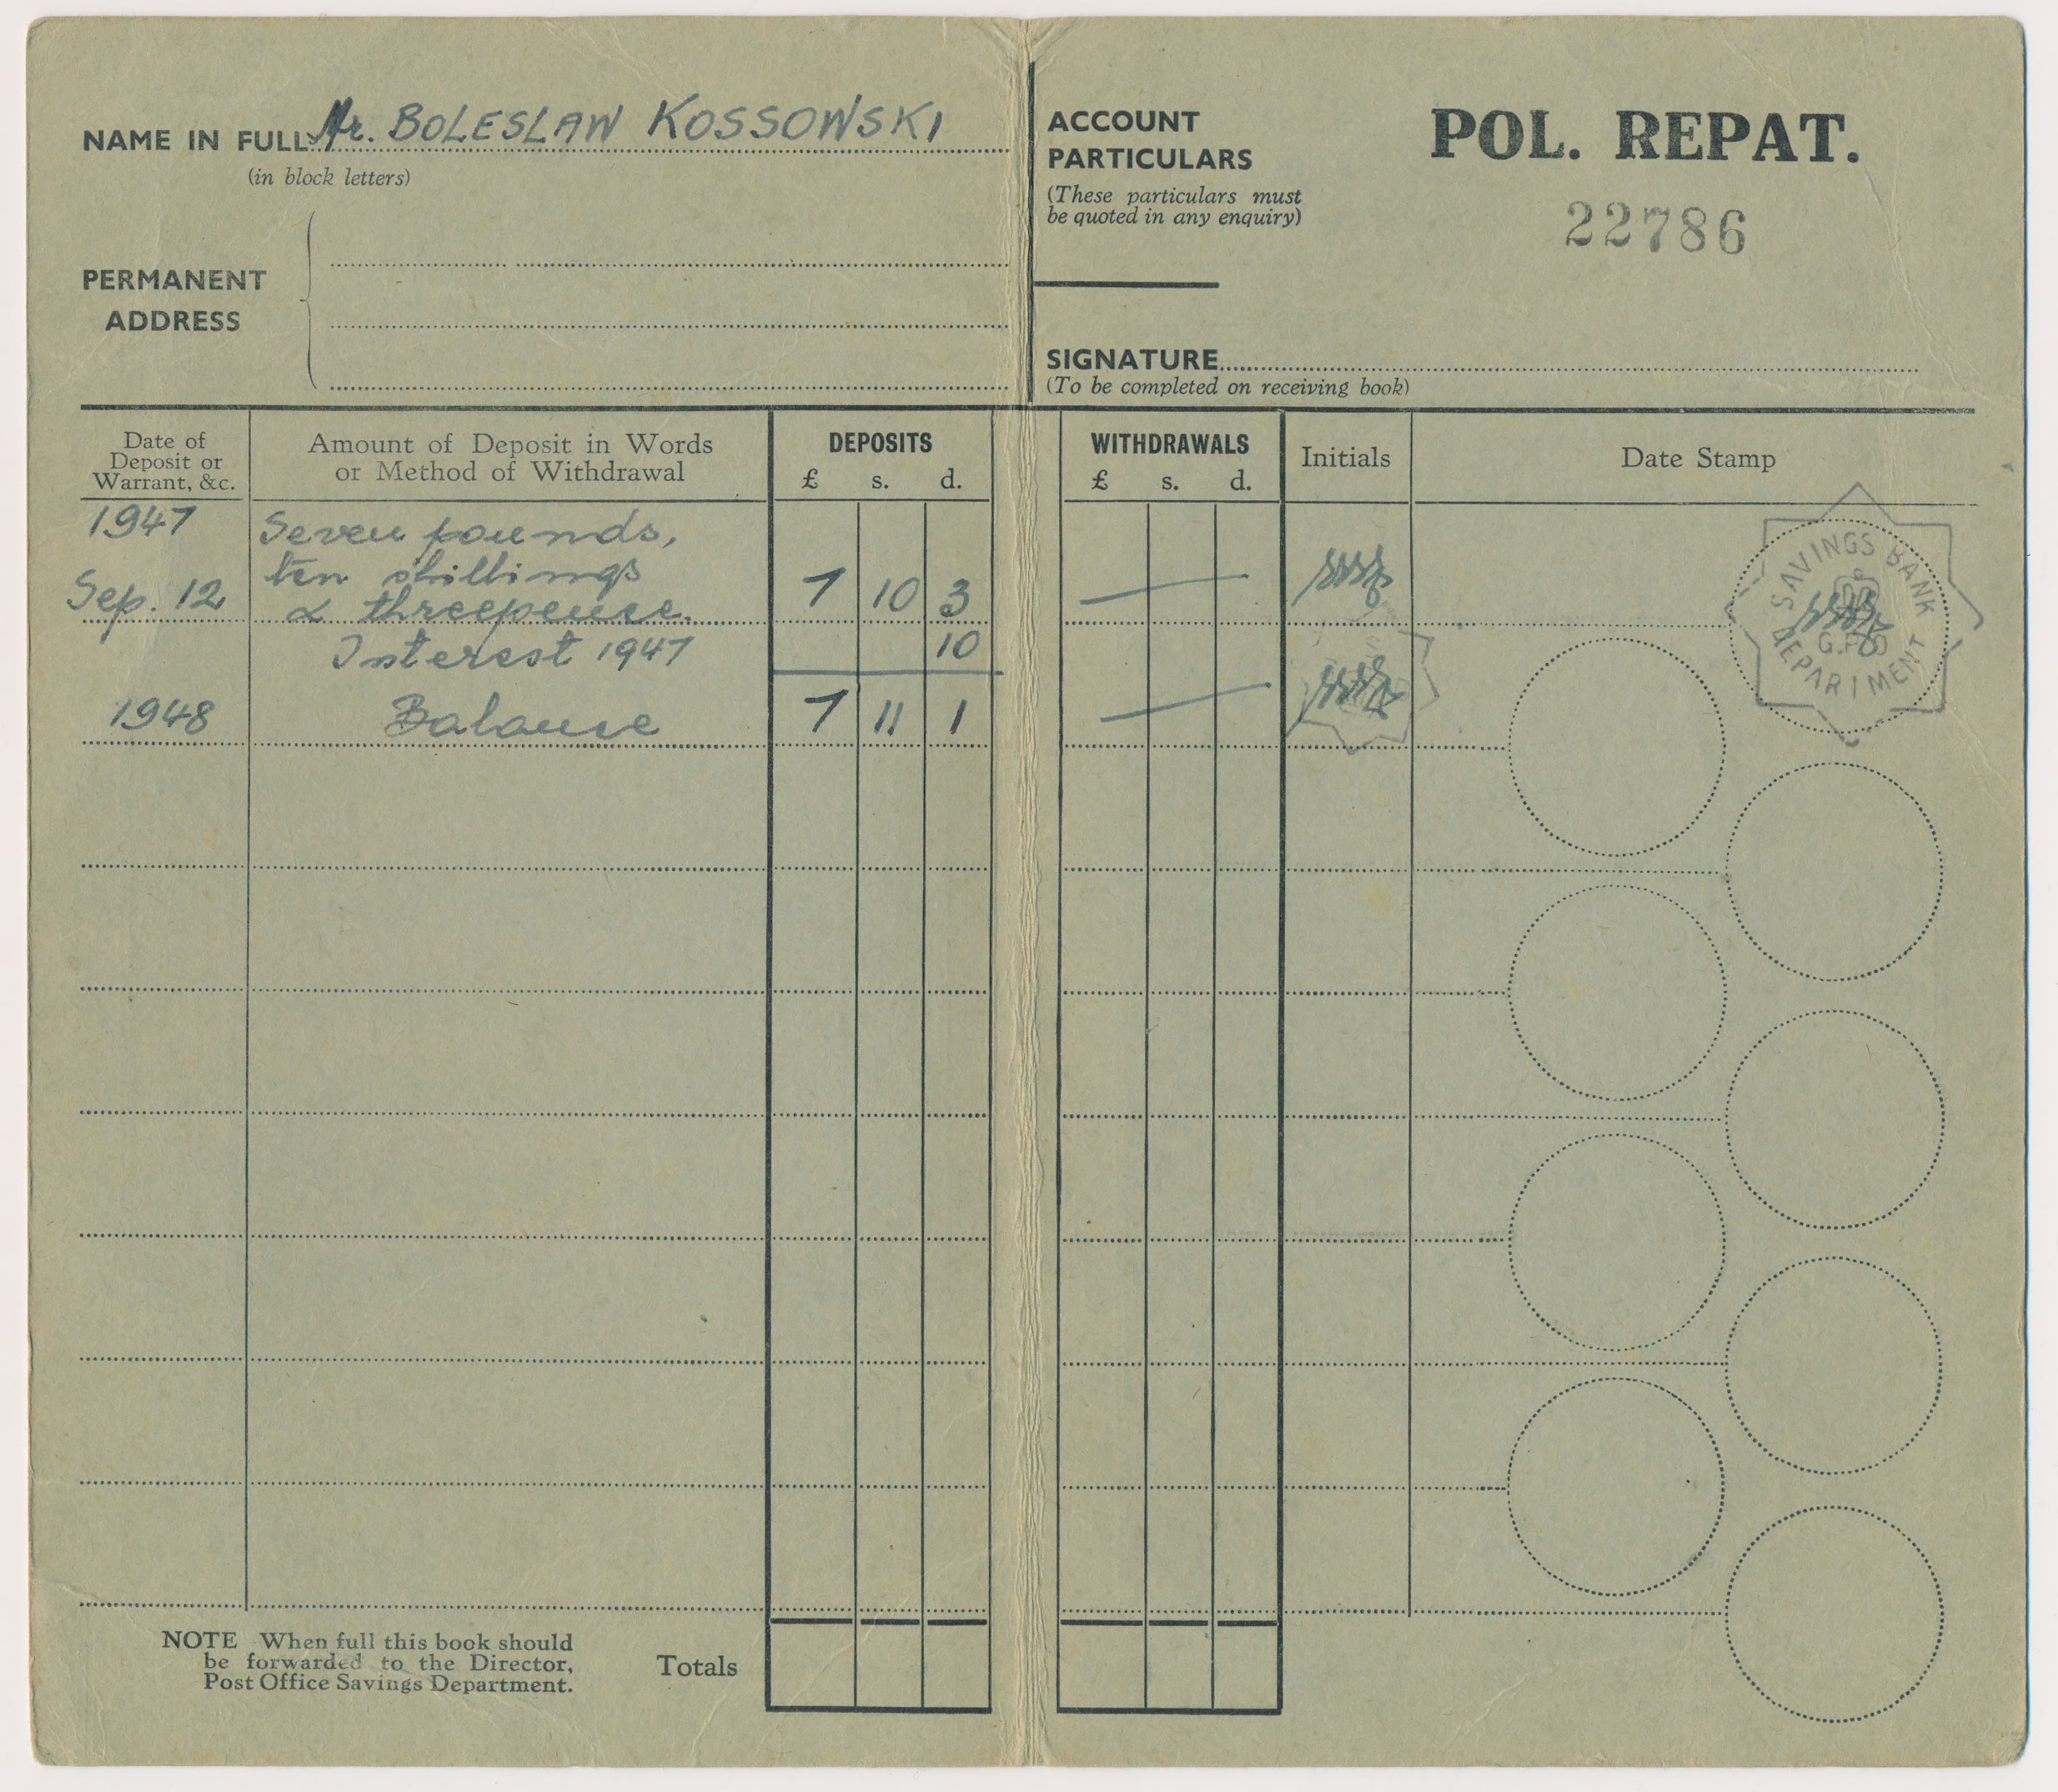 NAME IN FULL Mr. BOLESLAW KOSSOWSKI
(in block letters)
PERMANENT
ADDRESS
ACCOUNT
PARTICULARS
(These particulars must
be quoted in any enquiry)
POL. REPAT.
22786
SIGNATURE
(To be completed on receiving book)
Date of
Deposit or
Warrant, &c.
Amount of Deposit in Words
or Method of Withdrawal
DEPOSITS
£ s. d.
WITHDRAWALS
£ s. d.
Initials
Date Stamp
1947
Sep. 12
Seven pounds,
ten shillings
& threepence.
7 10 3
Interest 1947 10
1948 Balance 7 11 1
SAVINGS BANK
G.P.O
DEPARTMENT
NOTE When full this book should
be forwarded to the Director,
Post Office Savings Department.
Totals